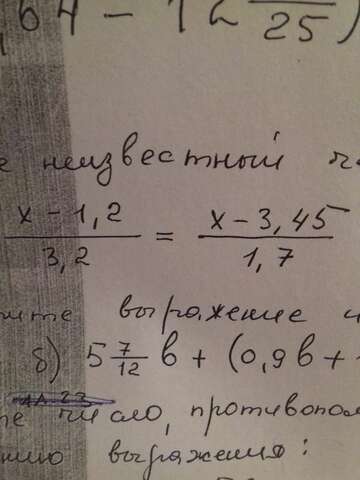 ,64 - 12 —/25)
е неизвестный ч
x - 1,2 / 3,2 = x - 3,45 / 1,7
выражение
б) 5 7/12 b + (0,9b +
число, противопол
выражения: